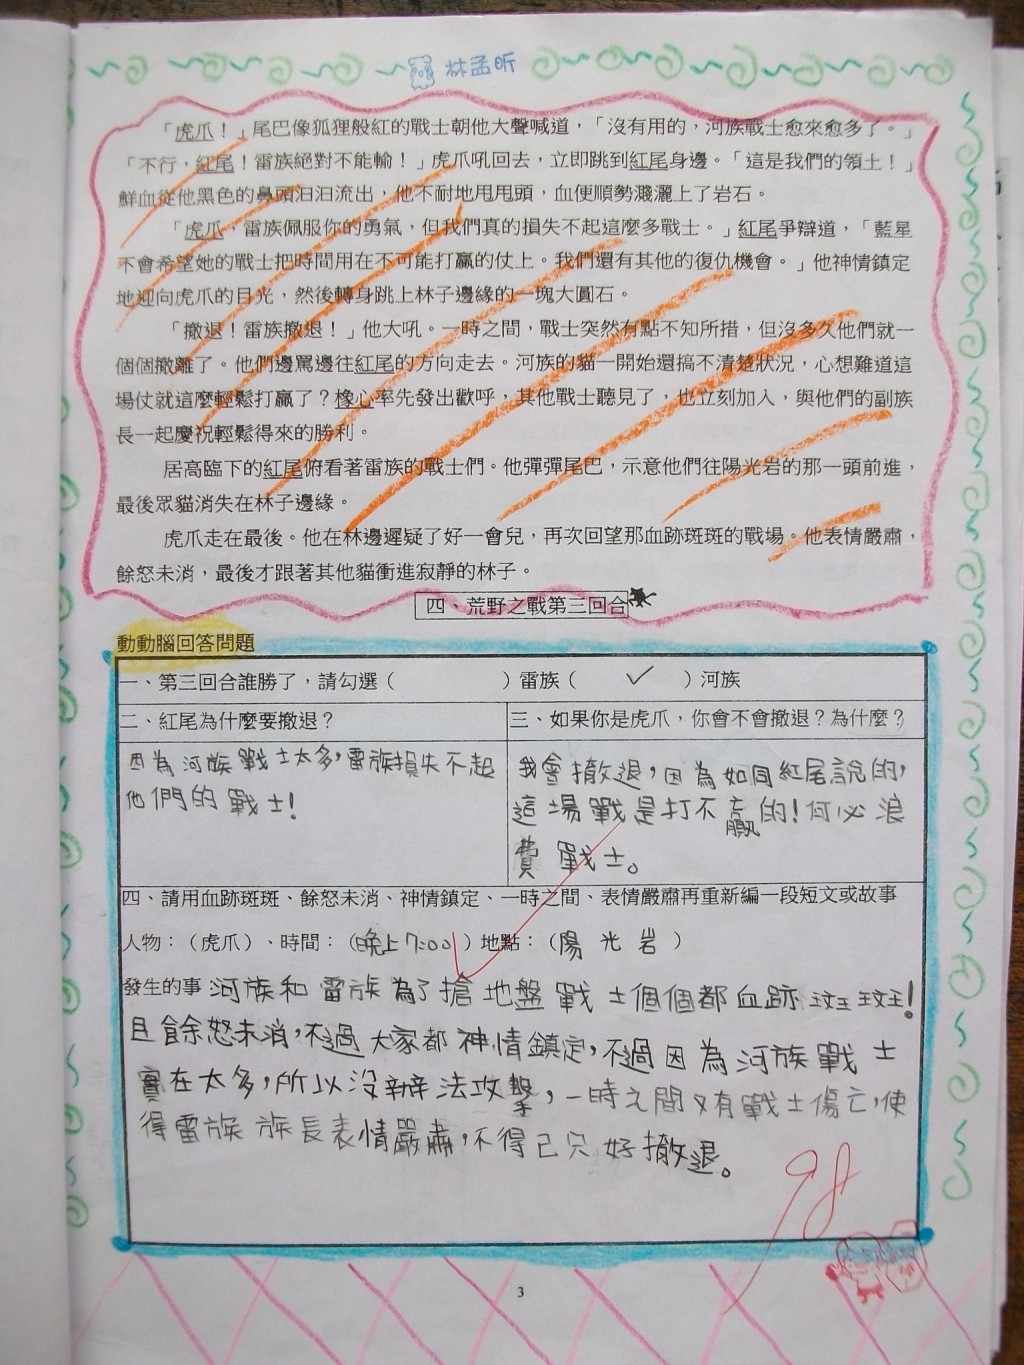 林孟昕
「虎爪！」尾巴像狐狸般紅的戰士朝他大聲喊道，「沒有用的，河族戰士愈來愈多了。」
「不行，紅尾！雷族絕對不能輸！」虎爪吼回去，立即跳到紅尾身邊。「這是我們的領土！」
鮮血從他黑色的鼻頭汩汩流出，他不耐地甩甩頭，血便順勢濺灑上了岩石。
「虎爪，雷族佩服你的勇氣，但我們真的損失不起這麼多戰士。」紅尾爭辯道，「藍星
不會希望她的戰士把時間用在不可能打贏的仗上。我們還有其他的復仇機會。」他神情鎮定
地迎向虎爪的目光，然後轉身跳上林子邊緣的一塊大圓石。
「撤退！雷族撤退！」他大吼。一時之間，戰士突然有點不知所措，但沒多久他們就一
個個撤離了。他們邊罵邊往紅尾的方向走去。河族的貓一開始還搞不清楚狀況，心想難道這
場仗就這麼輕鬆打贏了？橡心率先發出歡呼，其他戰士聽見了，也立刻加入，與他們的副族
長一起慶祝輕鬆得來的勝利。
居高臨下的紅尾俯看著雷族的戰士們。他彈彈尾巴，示意他們往陽光岩的那一頭前進，
最後眾貓消失在林子邊緣。
虎爪走在最後。他在林邊遲疑了好一會兒，再次回望那血跡斑斑的戰場。他表情嚴肅，
餘怒未消，最後才跟著其他貓衝進寂靜的林子。
四、荒野之戰第三回合
動動腦回答問題
一、第三回合誰勝了，請勾選（　　）雷族（　✓　）河族
二、紅尾為什麼要撤退？
因為河族戰士太多，雷族損失不起
他們的戰士！
三、如果你是虎爪，你會不會撤退？為什麼？
我會撤退，因為如同紅尾說的，
這場戰是打不贏的！何必浪
費戰士。
四、請用血跡斑斑、餘怒未消、神情鎮定、一時之間、表情嚴肅再重新編一段短文或故事
人物：（虎爪）、時間：（晚上7:00）地點：（陽光岩）
發生的事 河族和雷族為了搶地盤戰士個個都血跡斑斑！
且餘怒未消，不過大家都神情鎮定，不過因為河族戰士
實在太多，所以沒辦法攻擊，一時之間又有戰士傷亡，使
得雷族族長表情嚴肅，不得已只好撤退。
98
3